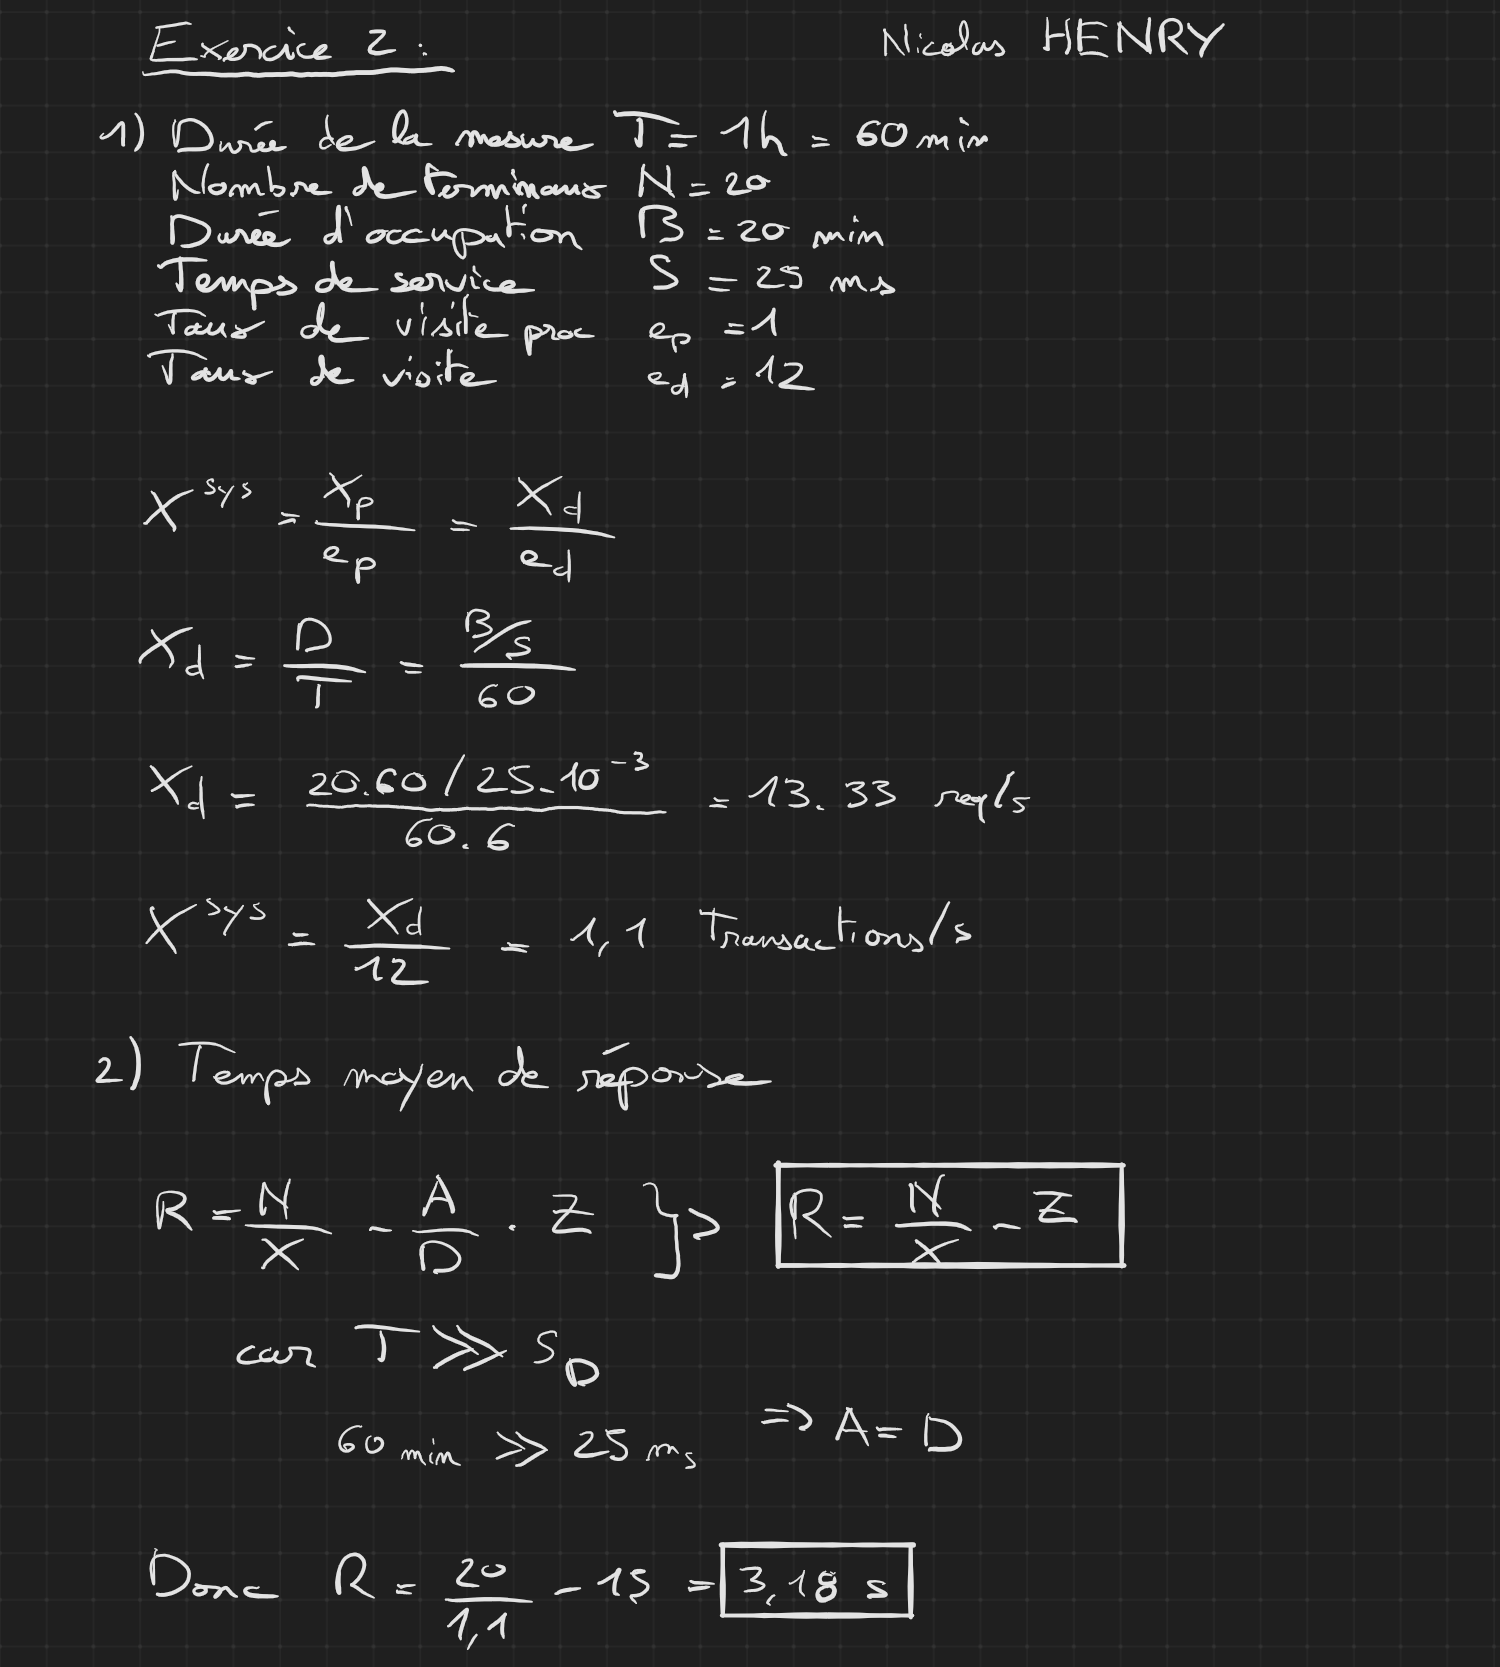 Exercice 2 :
Nicolas HENRY
1) Durée de la mesure T = 1h = 60 min
Nombre de terminaux N = 20
Durée d'occupation B = 20 min
Temps de service S = 25 ms
Taux de visite proc e_p = 1
Taux de visite e_d = 12
X^sys = X_p / e_p = X_d / e_d
X_d = D / T = (B/S) / 60
X_d = (20.60 / 25.10^-3) / (60.6) = 13.33 req/s
X^sys = X_d / 12 = 1,1 Transactions/s
2) Temps moyen de réponse
R = N/X - A/D . Z } > R = N/X - Z
car T >> S_D
60 min >> 25 ms => A = D
Donc R = 20 / 1,1 - 15 = 3,18 s